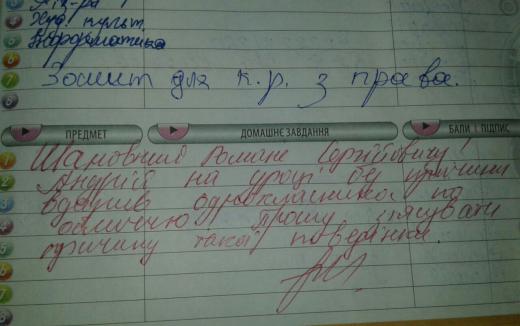 Худ. культ.
Інформатика
7 Зошит для к.р. з права.
8
ПРЕДМЕТ ДОМАШНЄ ЗАВДАННЯ БАЛИ І ПІДПИС
1 Шановний Романе Сергійовичу!
2 Андрій на уроці без причини
3 вдарив однокласника по
4 обличчю. Прошу з'ясувати
5 причину такої поведінки.
6
7
8